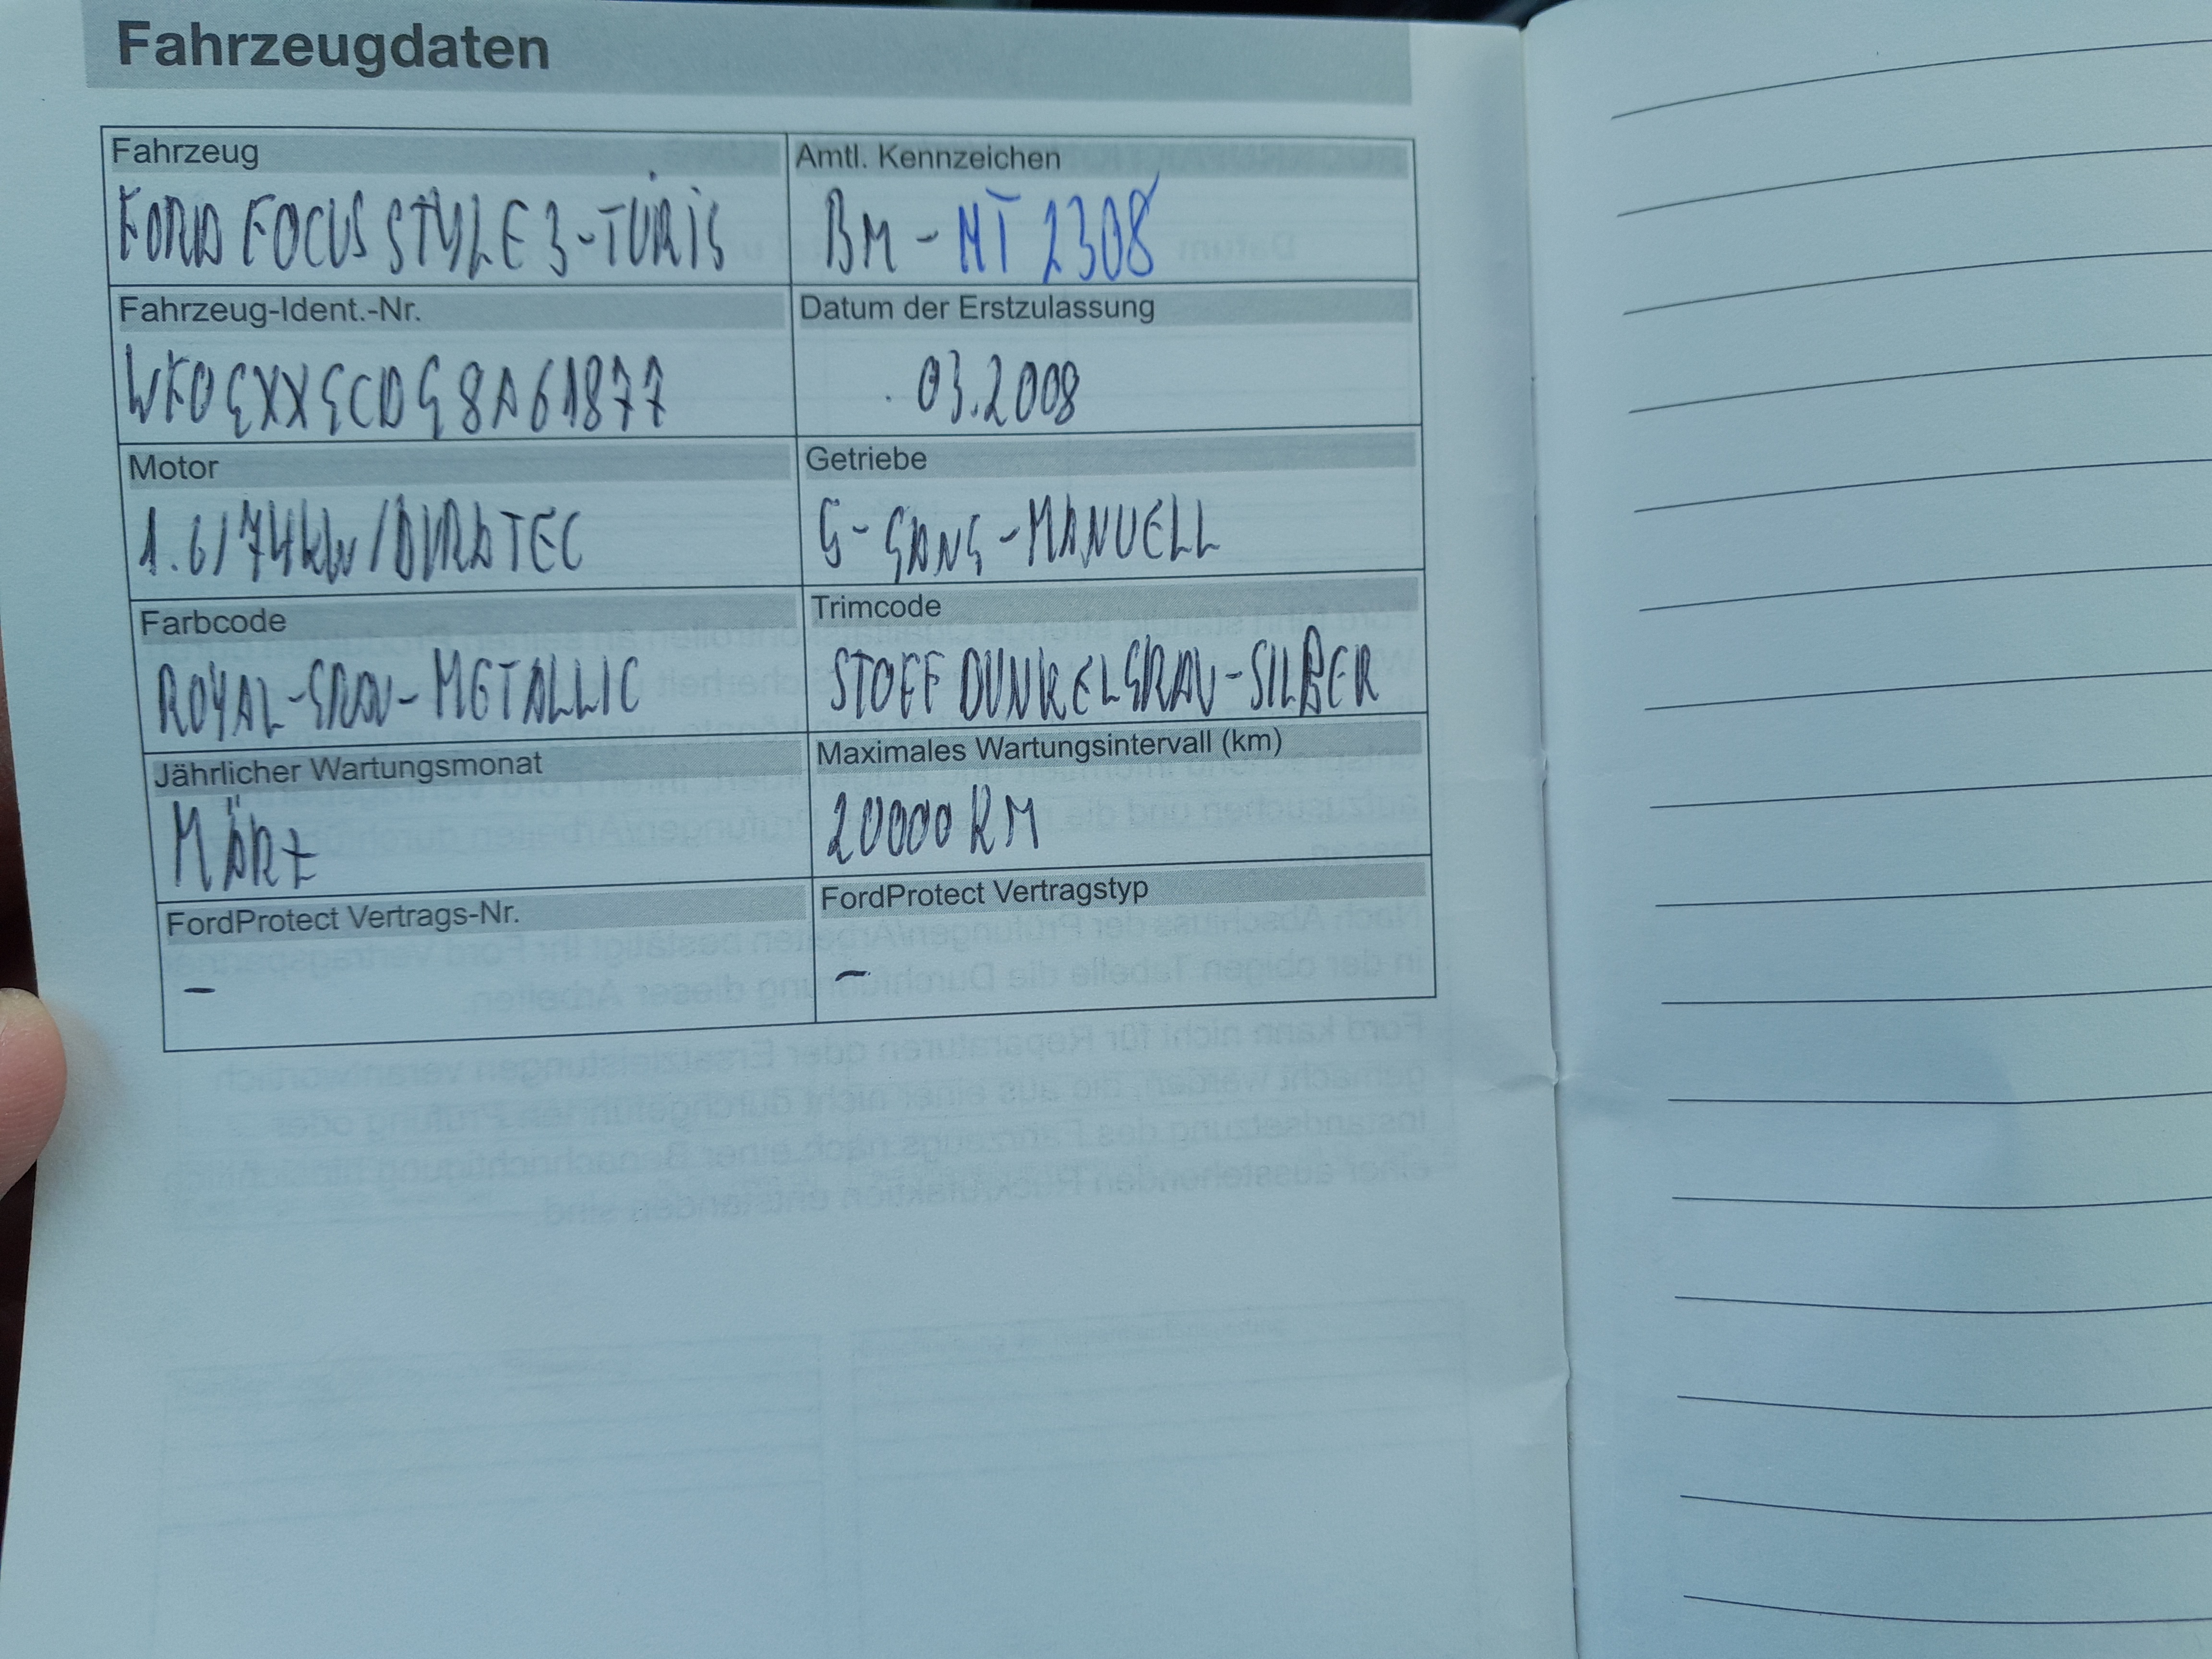 Fahrzeugdaten
Fahrzeug
FORD FOCUS STYLE 3-TÜRIG
Amtl. Kennzeichen
BM - MT 2308
Fahrzeug-Ident.-Nr.
WF0GXXGCDG8A61877
Datum der Erstzulassung
03.2008
Motor
1.6/74kW/DURATEC
Getriebe
5-GANG-MANUELL
Farbcode
ROYAL-GRAU-METALLIC
Trimcode
STOFF DUNKELGRAU-SILBER
Jährlicher Wartungsmonat
MÄRZ
Maximales Wartungsintervall (km)
20000 KM
FordProtect Vertrags-Nr.
–
FordProtect Vertragstyp
–